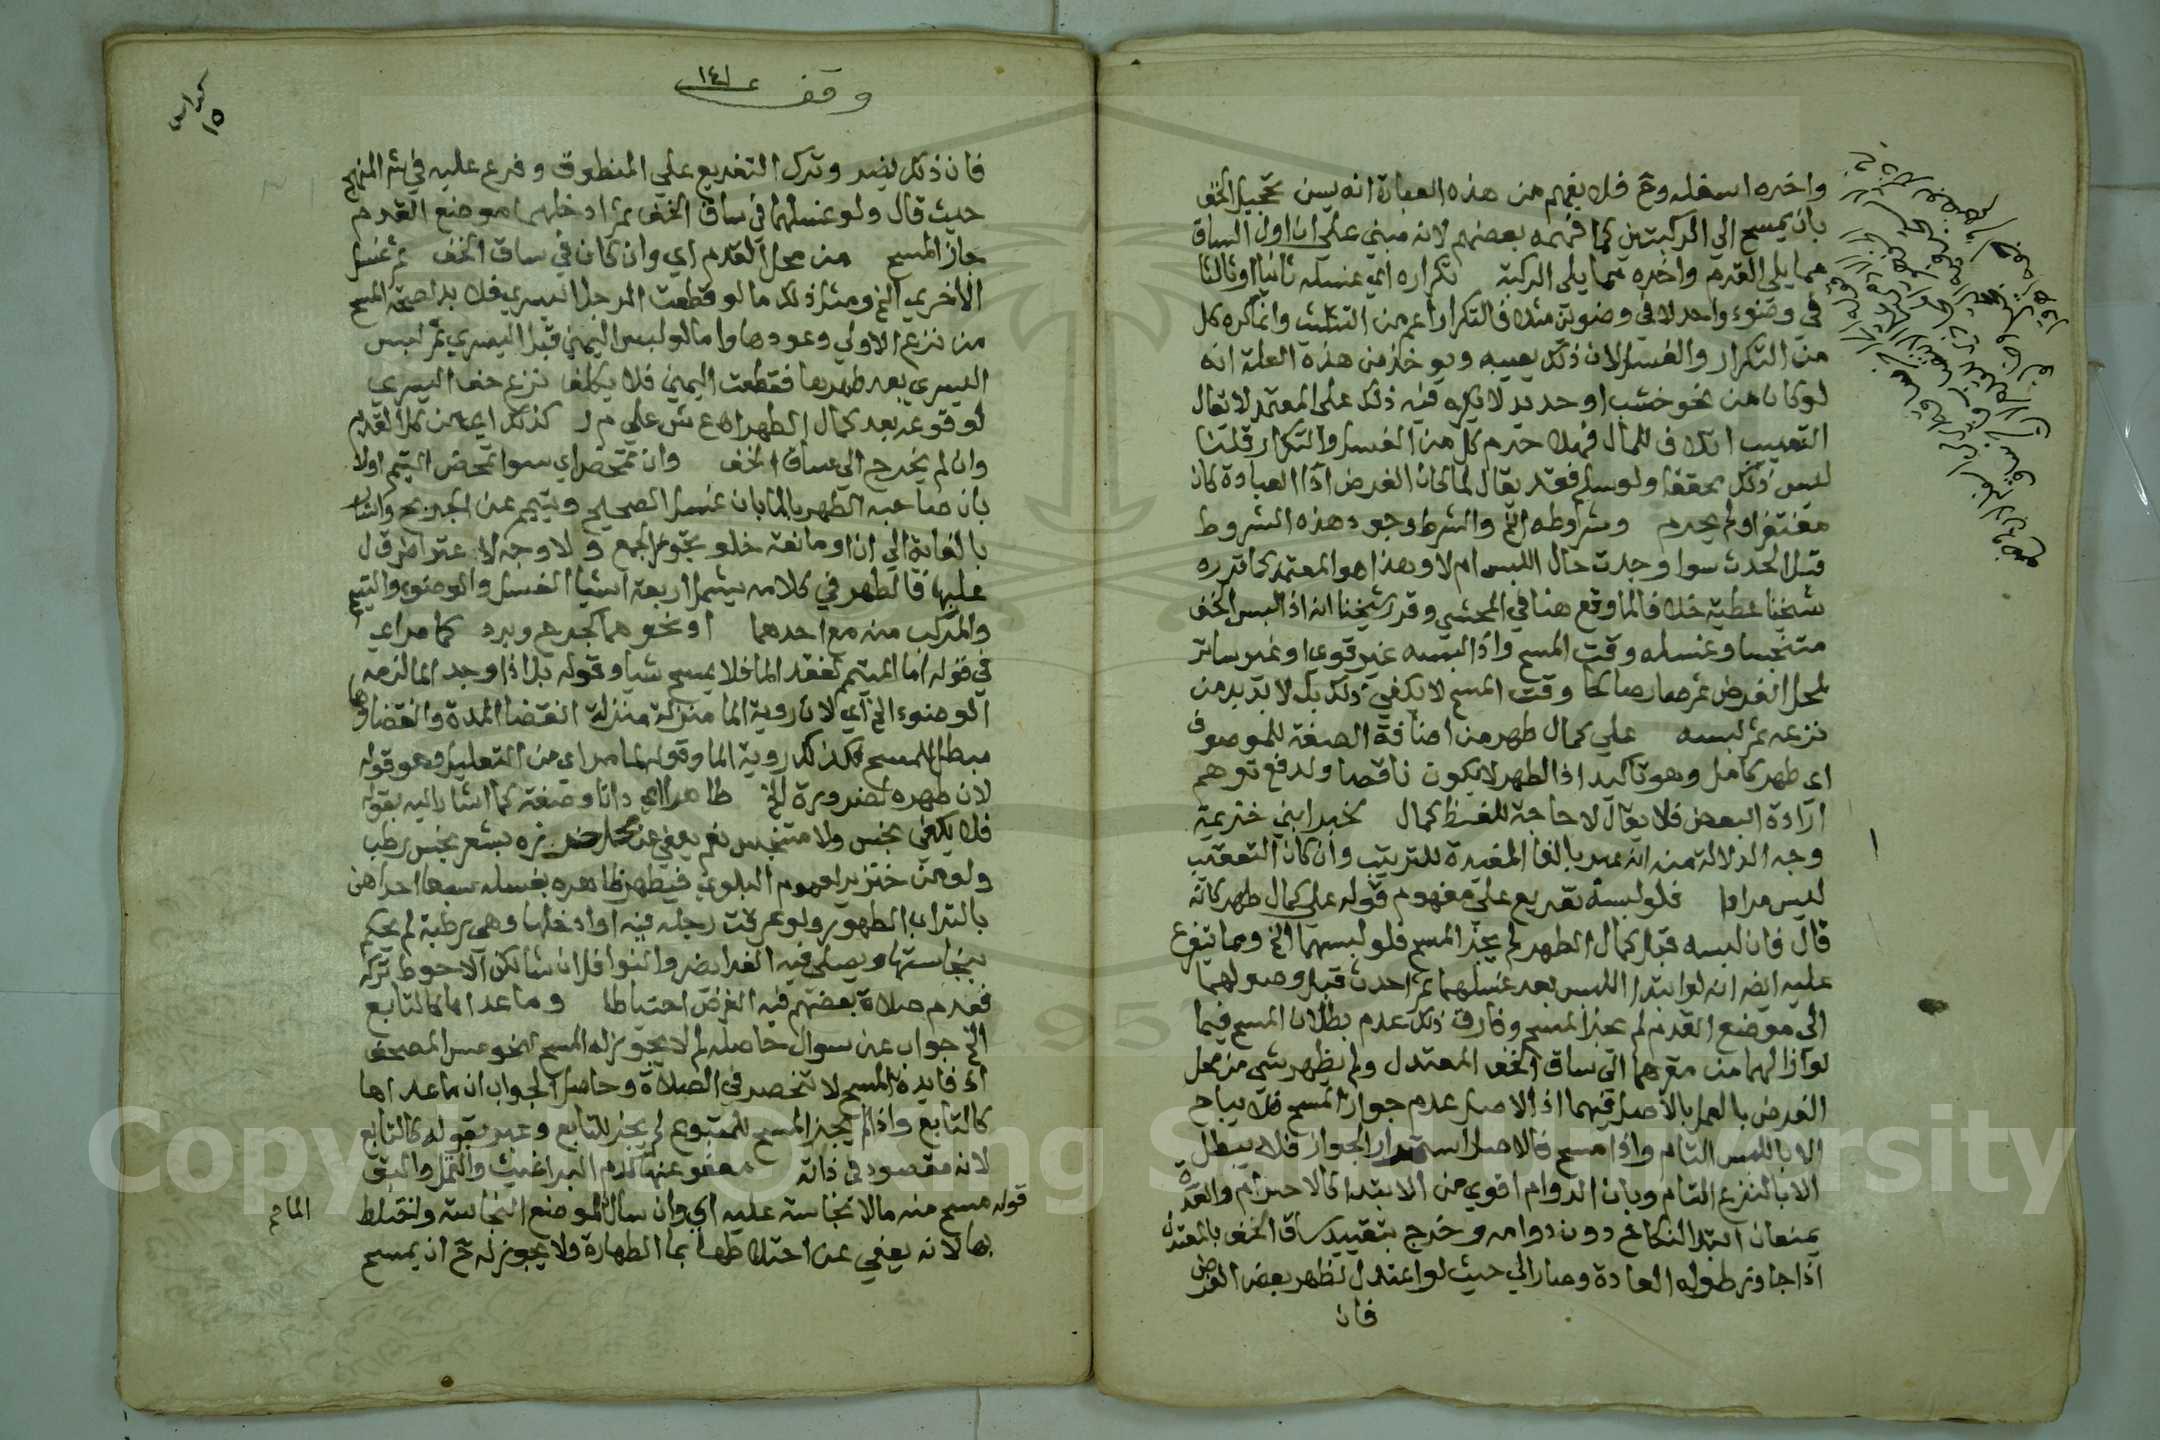 واخره اسفله وح فلا يفهم من هذه العبارة انه يسن تحجيل الخف
بان يمسح الي الركبتين كما فهمه بعضهم لانه مبني علي ان اول الساق
مما يلي القدم واخره مما يلي الركبة تكراره اي غسله ثانيا اوثالثا
في وضوء واحد لا في وضوين مثلا فالتكرار اعم من التثليث وانما كره كل
من التكرار والغسل لان ذلك يعيبه ويوخذ من هذه العلة انه
لو كان من نحو خشب او حديد لا يكره فيه ذلك علي المعتمد لا يقال
التعييب اتلاف للمال فهلا حرم كل من الغسل والتكرار قلنا
ليس ذلك محققا ولو سلم فقد يقال لما كان الغرض اداا العبادة كان
مغتفرا ولم يحرم وشروطه الخ والشرط وجود هذه الشروط
قبل الحدث سوا وجدت حال اللبس ام لا وهذا هو المعتمد كما قرره
شيخنا عطية خلافا لما وقع هنا في المحشي وقرر شيخنا انه اذا لبس الخف
متنجسا وغسله وقت المسح واذا لبسه غير قوي او غير ساتر
لمحل الفرض ثم صار صالحا وقت المسح لا يكفي ذلك بل لا بد من
نزعه ثم لبسه علي كمال طهر من اضافة الصفة للموصوف
اي طهر كامل وهو تاكيد اذ الطهر لا يكون ناقصا ولدفع توهم
ارادة البعض فلا يقال لا حاجة للفظ كمال لخبر ابني خزيمة
وجه الدلالة منه انه عبر بالفا المفيدة للترتيب وان كان التعقيب
ليس مرادا فلو لبسه تفريع علي مفهوم قوله علي كمال طهر كانه
قال فان لبسه قبل كمال الطهر لم يجز المسح فلو لبسهما الخ ومما يتفرع
عليه ايضا انه لو ابتدا اللبس بعد غسلهما ثم احدث قبل وصولهما
الي موضع القدم لم يجز المسح وفارق ذلك عدم بطلان المسح فيما
لو ازالهما من مقرهما الي ساق الخف المعتدل ولم يظهر شي من محل
الفرض بالعمل بالاصل فيهما اذ الاصل عدم جواز المسح فلا يباح
الا باللبس التام واذا مسح فالاصل استمرار الجواز فلا يبطل
الا بالنزع التام وبان الدوام اقوي من الابتدا كالاحرام والعدة
يمنعان ابتدا النكاح دون دوامه وخرج بتقييد ساق الخف بالمعتدل
اذا جاوز طوله العادة وصار الي حيث لو اعتدل لظهر بعض الفرض
فان
وقف ١٤١
كراس
١٥
فان ذلك يضر وترك التفريع علي المنطوق وفرع عليه في شم المنهج
حيث قال ولو غسلهما في ساق الخف ثم ادخلهما موضع القدم
جاز المسح من محل القدم اي وان كان في ساق الخف ثم غسل
الاخري الخ ومثل ذلك ما لو قطعت الرجل اليسري فلا بد لصحة المسح
من نزع الاولي وعودها واما لو لبس اليمني قبل اليسري ثم لبس
اليسري بعد طهرها فقطعت اليمني فلا يكلف نزع خف اليسري
لوقوعه بعد كمال الطهر اه ع ش علي م ر كذلك اي من محل القدم
وان لم يخرج الي ساق الخف وان تمحض اي سوا تمحض التيمم اولا
بان صاحبه الطهر بالما بان غسل الصحيح وتيمم عن الجريح واشار
بالغاية الي ان او مانعة خلو تجوز الجمع ولا وجه لاعتراض ق ل
عليها فالطهر في كلامه يشمل اربعة اشيا الغسل والوضوء والتيمم
والمركب منه مع احدهما او نحوهما كجرح وبرد كما مر اي
في قوله اما المتيمم لفقد الما فلا يمسح شيا وقوله بل اذا وجد الما لزمه
الوضوء الخ اي لان روية الما منزلة منزلة انقضا المدة وانقضاوها
مبطل للمسح فكذلك روية الما وقوله لما مر اي من التعليل وهو قوله
لان طهره لضرورة الخ طاهرا اي ذاتا وصفة كما اشار اليه بقوله
فلا يكفي نجس ولا متنجس نعم يعفي عن محل خرزه بشعر نجس رطب
ولو من خنزير لعموم البلوي فيطهر ظاهره بغسله سبعا احداهن
بالتراب الطهور ولو عرقت رجله فيه او ادخلها وهي رطبة لم يحكم
بنجاستها ويصلي فيه الفرايض والنوافل ان شا لكن الاحوط تركه
فعدم صلاة بعضهم فيه الفرض احتياطا وما عداها كالتابع
الخ جواب عن سوال حاصله لم لا يجوز له المسح لنحو مس المصحف
اذ فايدة المسح لا تنحصر في الصلاة وحاصل الجواب ان ما عداها
كالتابع واذا لم يجز المسح للمتبوع لم يجز للتابع وعبر بقوله كالتابع
لانه مقصود في ذاته معفو عنها كدم البراغيث والقمل والبق
قوله مسح منه ما لا نجاسة عليه اي وان سال الموضع النجاسة واختلط
بها لانه يعفي عن اختلاطها بما الطهارة ولا يجوز له ح ان يمسح